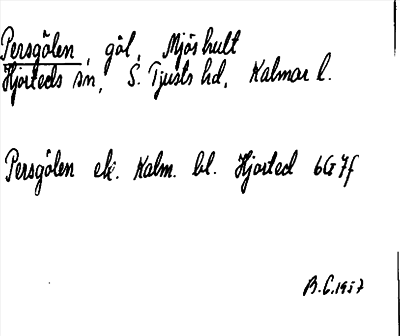 Persgölen, göl, Mjöshult
Hjorteds sn, S. Tjusts hd, Kalmar l.
Persgölen ek. Kalm. bl. Hjorted 6G7f
B.C. 1957